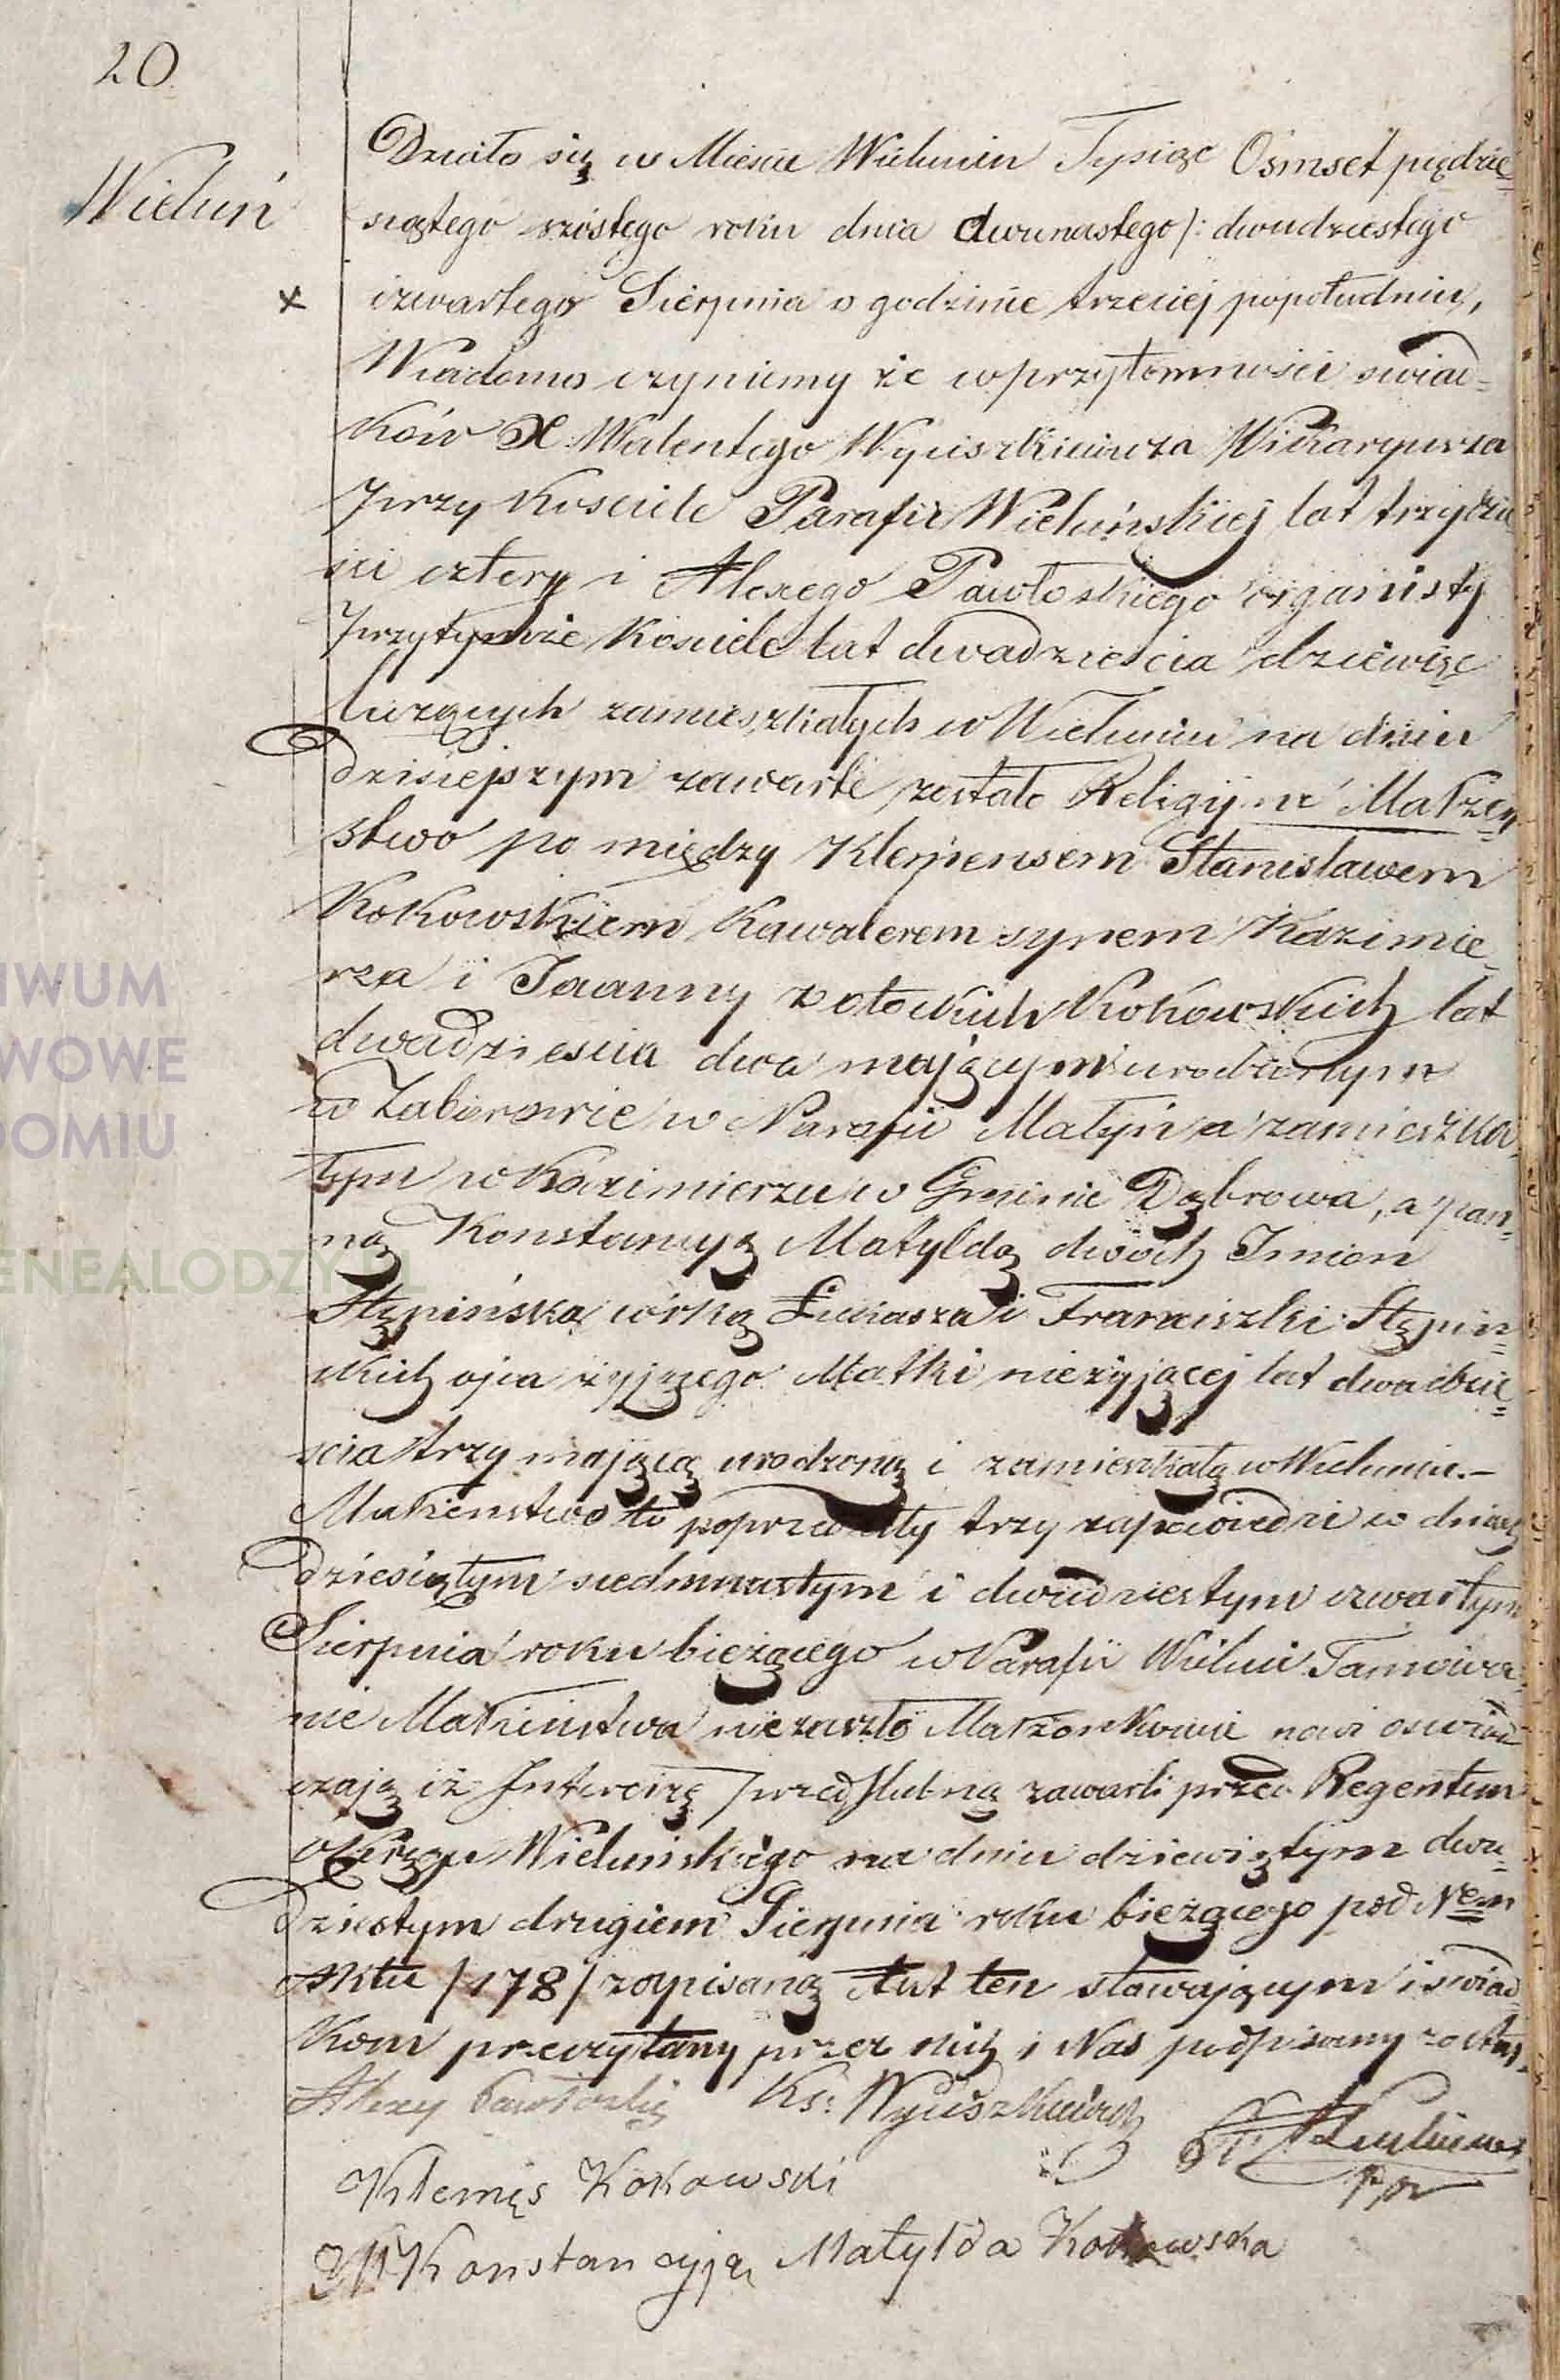 20
Wieluń
Działo się w Mieście Wieluniu Tysiąc Ósmset pięćdzie
siątego szóstego roku dnia dwunastego /: dwudziestego
x czwartego Sierpnia o godzinie trzeciej popołudniu,
Wiadomo czyniemy że w przytomności świad=
ków X. Walentego Wyciszkiewicza Wikaryusza
przy Kościele Parafii Wieluńskiej lat trzydzie
ści cztery i Alexego Pawłoskiego organisty
przytymże Kościele lat dwadzieścia dziewięć
liczących zamieszkałych w Wieluniu na dniu
dzisiejszym zawarte zostało Religijne Małżeń
stwo po między Klemensem Stanisławem
Kokowskiem Kawalerem synem Kazimie
rza i Joanny z Kokowskich lat
dwadzieścia dwa mającym urodzonym
w w Parafii Małyń a zamieszka
łym w Kazimierzu w Gminie Dąbrowa, a pan=
ną Konstancyą Matyldą dwóch Imion
Stępińską córką Łukasza i Franciszki Stępiń=
skich ojca żyjącego Matki nieżyjącej lat dwadzie=
ścia trzy mającą urodzoną i zamieszkałą w Wieluniu.-
Małżeństwo to poprzedziły trzy zapowiedzi w dniach
dziesiątym siedmnastym i dwudziestym czwartym
Sierpnia roku bieżącego w Parafii Wieluń Tamowa
nie Małżeństwa niezaszło Małżonkowie nowi oświad
czają iż Intercizę przedślubną zawarli przed Regentem
Okręgu Wieluńskiego na dniu dziewiętym dwu=
dziestym drugiem Sierpnia roku bieżącego pod Nem
Aktu /178/ zapisaną Akt ten stawającym i świad
kom przeczytany przez nich i Nas podpisany został.
Alexy Pawłoski Ks: Wyciszkiewicz
Klemęs Kokowski
Konstancyja Matylda Kokowska